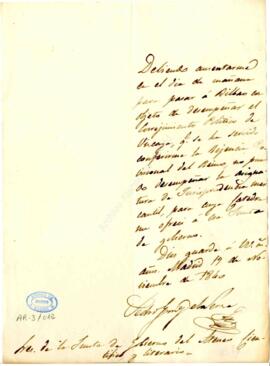 Debiendo ausentarme
en el dia de mañana
para pasar á Bilbao con
objeto de desempeñar el
Corregimiento Politico de
Vizcaya, q.e se ha servido
conferirme la Rejencia Pro
visional del Reino, no pue
do desempeñar la asigna
tura de Jurisprudencia mer
cantil, para cuya
me ofreci á esa Junta
de gobierno.
Dios guarde á V.S. m.s
años. Madrid 19 de No
viembre de 1840
Pedro
Sres. de la Junta de Gobierno del Ateneo Cien
tifico y literario.
AR-3/012